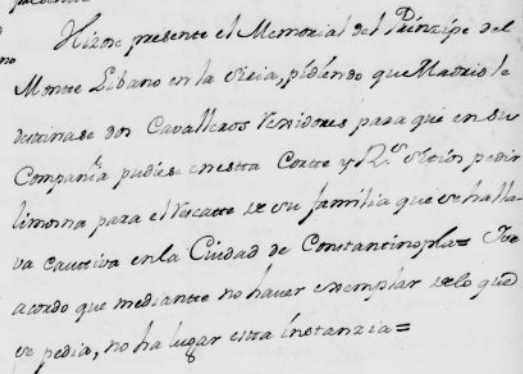 Hizose presente el Memorial del Prinzipe del
no
Monte Libano en la Siria, pidiendo que Madrid le
destinase dos Cavalleros Rexidores para que en su
Compañia pudiese en esta Corte y R.s sitios pedir
limosna para el rescatte de su familia que se halla-
va cautiva en la Ciudad de Constantinopla= Se
acordo que mediantte no haver exemplar de lo que
se pedia, no ha lugar esta instanzia=